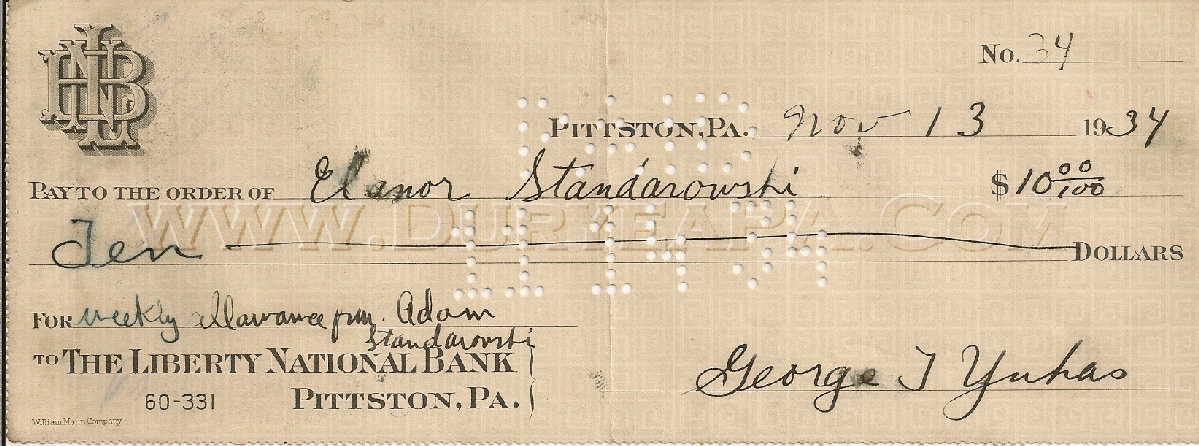 LNB
No. 34
PITTSTON, PA. Nov 13 1934
PAY TO THE ORDER OF Elanor Standarowski $10 00/100
WWW.DURYEAPA.COM
Ten DOLLARS
PAID
11 14 34
FOR weekly allawance from Adam
Standarowski
TO THE LIBERTY NATIONAL BANK
60-331 PITTSTON, PA.
George J Yuhas
William Mann Company